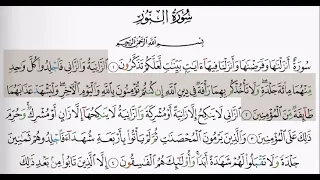 سُورَةُ النُّورِ
بِسْمِ اللَّهِ الرَّحْمَٰنِ الرَّحِيمِ
سُورَةٌ أَنزَلْنَاهَا وَفَرَضْنَاهَا وَأَنزَلْنَا فِيهَا آيَاتٍ بَيِّنَاتٍ لَّعَلَّكُمْ تَذَكَّرُونَ ١ الزَّانِيَةُ وَالزَّانِي فَاجْلِدُوا كُلَّ وَاحِدٍ
مِّنْهُمَا مِائَةَ جَلْدَةٍ وَلَا تَأْخُذْكُم بِهِمَا رَأْفَةٌ فِي دِينِ اللَّهِ إِن كُنتُمْ تُؤْمِنُونَ بِاللَّهِ وَالْيَوْمِ الْآخِرِ وَلْيَشْهَدْ عَذَابَهُمَا
طَائِفَةٌ مِّنَ الْمُؤْمِنِينَ ٢ الزَّانِي لَا يَنكِحُ إِلَّا زَانِيَةً أَوْ مُشْرِكَةً وَالزَّانِيَةُ لَا يَنكِحُهَا إِلَّا زَانٍ أَوْ مُشْرِكٌ وَحُرِّمَ
ذَٰلِكَ عَلَى الْمُؤْمِنِينَ ٣ وَالَّذِينَ يَرْمُونَ الْمُحْصَنَاتِ ثُمَّ لَمْ يَأْتُوا بِأَرْبَعَةِ شُهَدَاءَ فَاجْلِدُوهُمْ ثَمَانِينَ
جَلْدَةً وَلَا تَقْبَلُوا لَهُمْ شَهَادَةً أَبَدًا وَأُولَٰئِكَ هُمُ الْفَاسِقُونَ ٤ إِلَّا الَّذِينَ تَابُوا مِن بَعْدِ ذَٰلِكَ